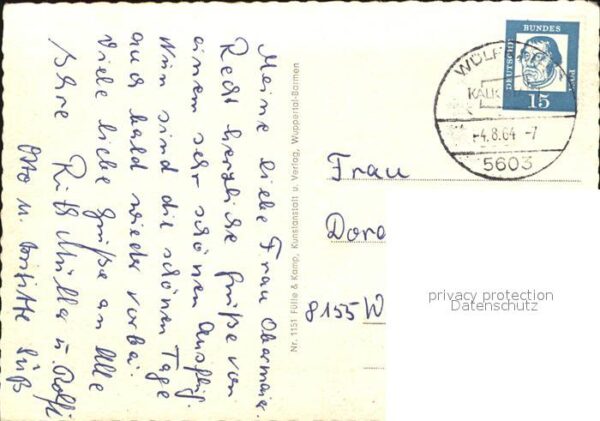 Meine liebe Frau Obermaier.
Recht herzliche Grüße von
einem sehr schönen Ausflug.
Nun sind die schönen Tage
auch bald wieder vorbei.
Viele liebe Grüße an Alle
Ihre Ruth Müller u.
Otto u. Süß
Nr. 1151 Fülle & Kamp, Kunstanstalt u. Verlag, Wuppertal-Barmen
DEUTSCHE BUNDES
15
WÜLF
KALK
-4.8.64 -7
5603
Frau
Dora
8155 W
privacy protection
Datenschutz